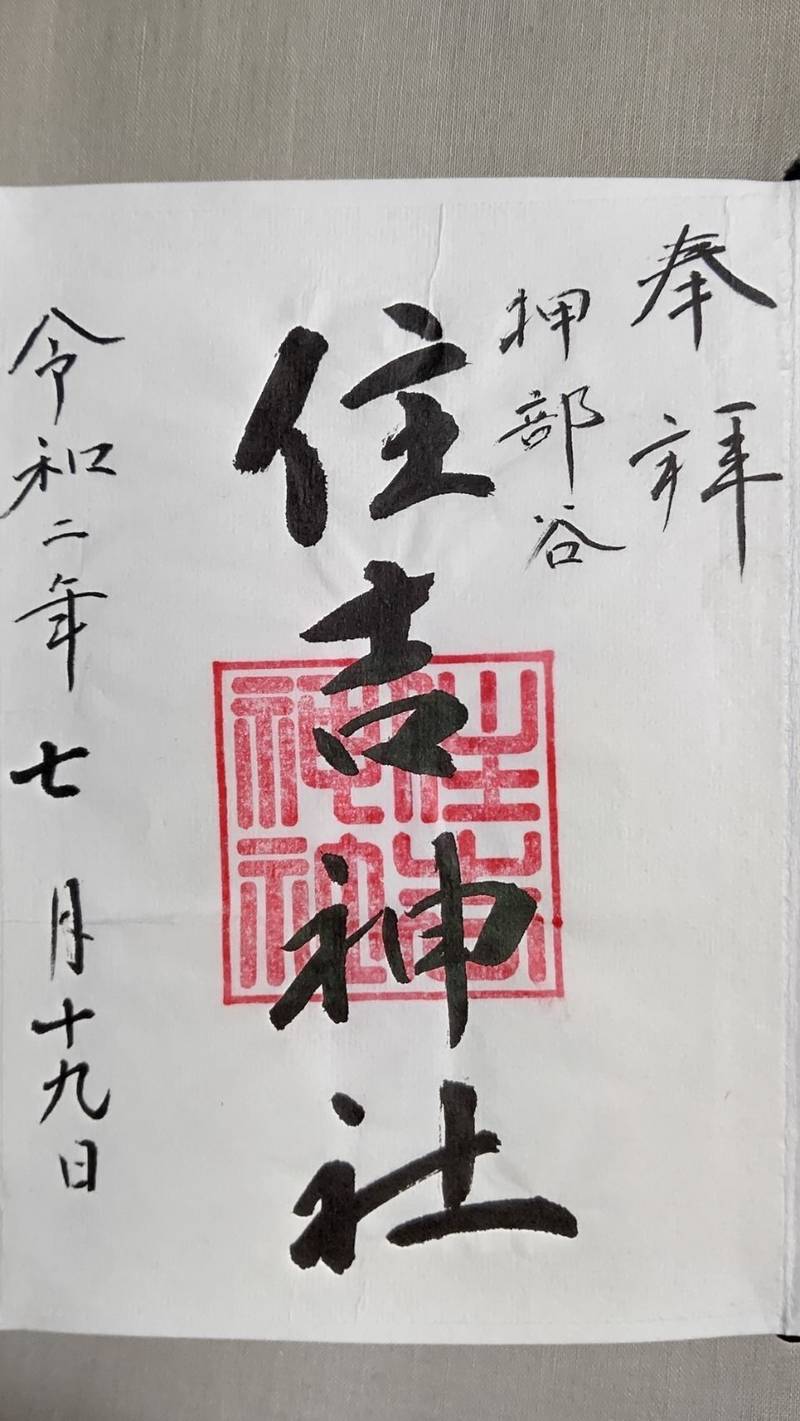 奉拝
押部谷
住吉神社
住吉
神社
令和二年七月十九日